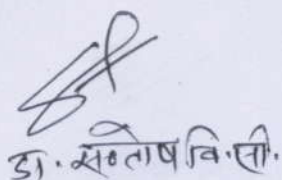 डा. सन्तोष वि.सी.